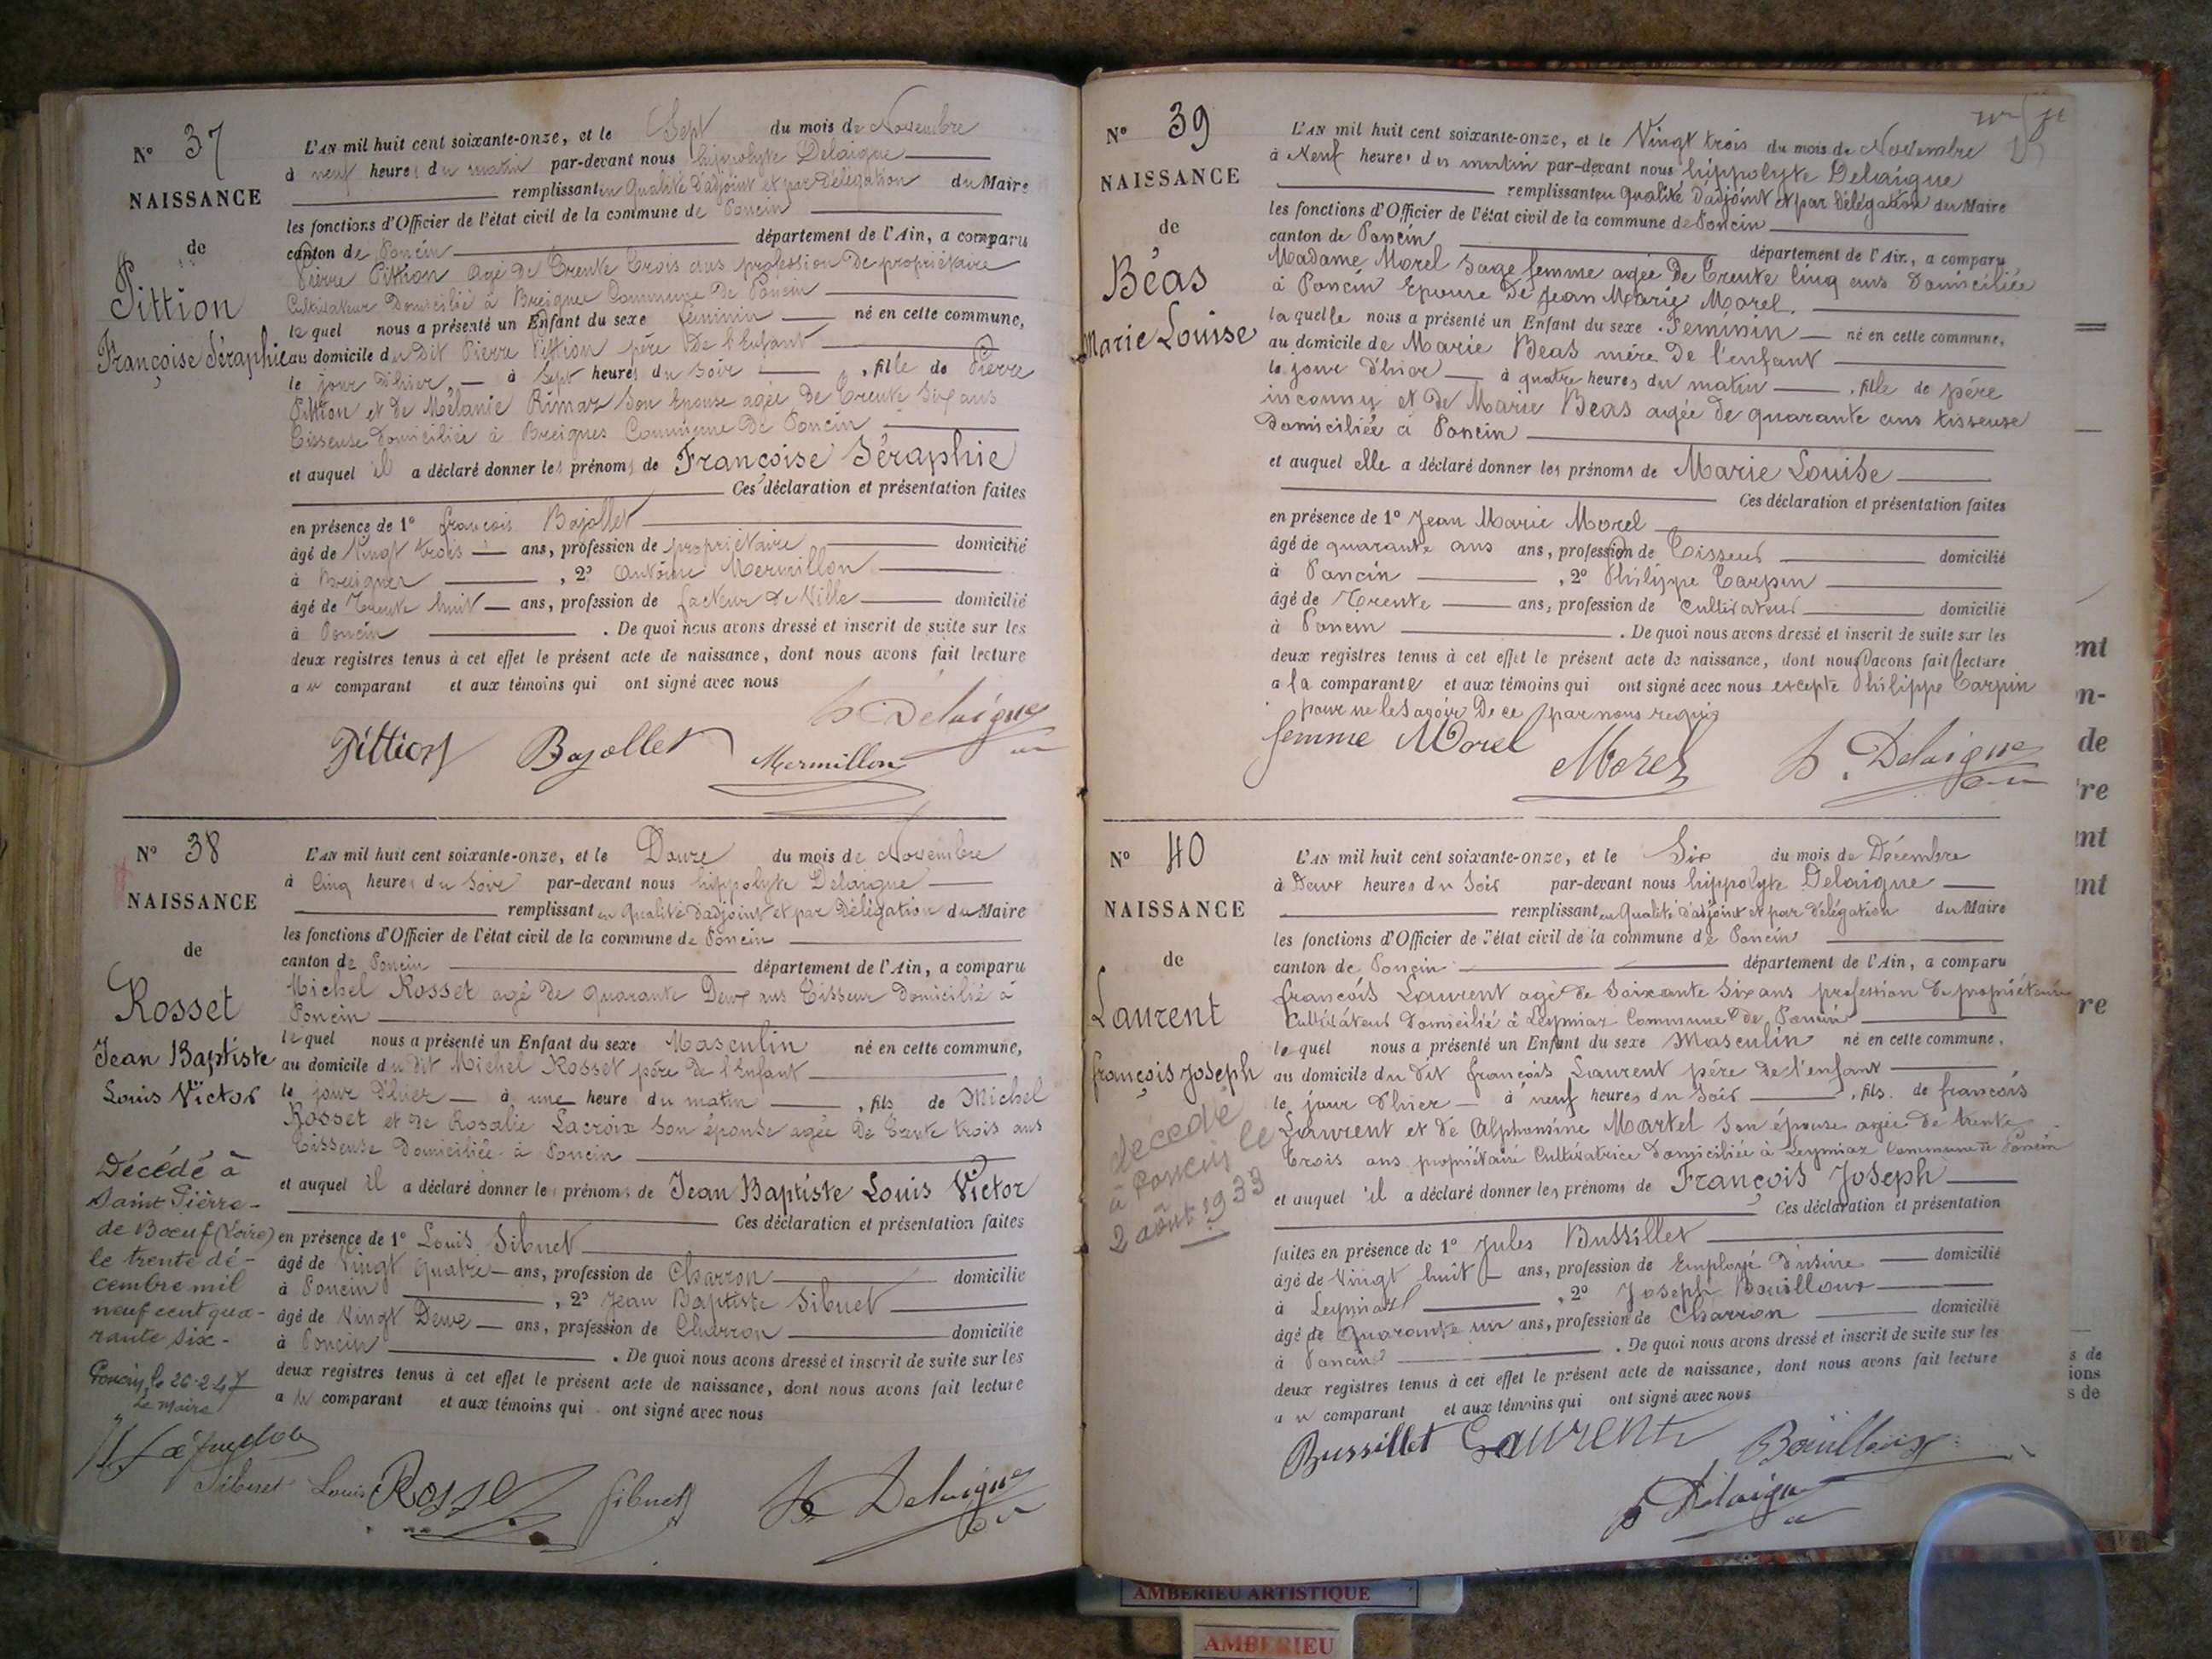 N° 37
NAISSANCE
de
Pittion
Françoise Séraphie
L'AN mil huit cent soixante-onze, et le Sept du mois de Novembre
à neuf heures du matin par-devant nous hippolyte Delaigue
remplissant en qualité d'adjoint et par Délégation du Maire
les fonctions d'Officier de l'état civil de la commune de Poncin
canton de Poncin département de l'Ain, a comparu
Pierre Pittion agé de Trente Trois ans profession de propriétaire
Cultivateur Domicilié à Breignes Commune de Poncin
le quel nous a présenté un Enfant du sexe féminin né en cette commune,
au domicile du dit Pierre Pittion père de l'Enfant
le jour d'hier à Sept heures du Soir , fille de Pierre
Pittion et de Mélanie Rimaz Son Epouse agée de Trente Six ans
Tisseuse domiciliée à Breignes Commune de Poncin
et auquel il a déclaré donner les prénoms de Françoise Séraphie
Ces déclaration et présentation faites
en présence de 1° françois Bajollet
âgé de Vingt trois ans, profession de propriétaire domicilié
à Breignes , 2° Antoine Mermillon
âgé de Trente huit ans, profession de facteur de Ville domicilié
à Poncin . De quoi nous avons dressé et inscrit de suite sur les
deux registres tenus à cet effet le présent acte de naissance, dont nous avons fait lecture
au comparant et aux témoins qui ont signé avec nous
Pittion Bajollet Mermillon h. Delaigue
N° 38
NAISSANCE
de
Rosset
Jean Baptiste
Louis Victor
Décédé à
Saint Pierre-
de Bœuf (Loire)
le trente dé-
cembre mil
neuf cent qua-
rante six-
Poncin, le 26-2-47
Le maire
L'AN mil huit cent soixante-onze, et le Douze du mois de Novembre
à Cinq heures du Soir par-devant nous hippolyte Delaigue
remplissant en Qualité d'adjoint et par Délégation du Maire
les fonctions d'Officier de l'état civil de la commune de Poncin
canton de Poncin département de l'Ain, a comparu
Michel Rosset agé de quarante Deux ans Tisseur Domicilié à
Poncin
le quel nous a présenté un Enfant du sexe Masculin né en cette commune,
au domicile du dit Michel Rosset père de l'Enfant
le jour d'hier à une heure du matin , fils de Michel
Rosset et de Rosalie Lacroix Son épouse agée de Trente trois ans
Tisseuse Domiciliée à Poncin
et auquel il a déclaré donner les prénoms de Jean Baptiste Louis Victor
Ces déclaration et présentation faites
en présence de 1° Louis Sibuet
âgé de Vingt quatre ans, profession de Charron domicilié
à Poncin , 2° Jean Baptiste Sibuet
âgé de Vingt Deux ans, profession de Charron domicilié
à Poncin . De quoi nous avons dressé et inscrit de suite sur les
deux registres tenus à cet effet le présent acte de naissance, dont nous avons fait lecture
au comparant et aux témoins qui ont signé avec nous
Sibuet Louis Rosset Sibuet h. Delaigue
N° 39
NAISSANCE
de
Béas
Marie Louise
L'AN mil huit cent soixante-onze, et le Vingt trois du mois de Novembre
à Neuf heures du matin par-devant nous hippolyte Delaigue
remplissant en qualité d'adjoint et par Délégation du Maire
les fonctions d'Officier de l'état civil de la commune de Poncin
canton de Poncin département de l'Ain, a comparu
Madame Morel Sage femme agée de Trente Cinq ans Domiciliée
à Poncin Epouse de Jean Marie Morel.
la quelle nous a présenté un Enfant du sexe Feminin né en cette commune,
au domicile de Marie Beas mère de l'enfant
le jour d'hier à quatre heures du matin , fille de père
inconnu et de Marie Beas agée de quarante ans tisseuse
Domiciliée à Poncin
et auquel elle a déclaré donner les prénoms de Marie Louise
Ces déclaration et présentation faites
en présence de 1° Jean Marie Morel
âgé de quarante ans ans, profession de Tisseur domicilié
à Poncin , 2° Philippe Carpin
âgé de Trente ans, profession de Cultivateur domicilié
à Poncin . De quoi nous avons dressé et inscrit de suite sur les
deux registres tenus à cet effet le présent acte de naissance, dont nous avons fait lecture
a la comparante et aux témoins qui ont signé avec nous excepte Philippe Carpin
pour ne le Savoir De ce par nous requis
femme Morel Morel h. Delaigue
N° 40
NAISSANCE
de
Laurent
françois Joseph
décédé
à Poncin le
2 août 1933
L'AN mil huit cent soixante-onze, et le Six du mois de Décembre
à Deux heures du Soir par-devant nous hippolyte Delaigue
remplissant en Qualité d'adjoint et par délégation du Maire
les fonctions d'Officier de l'état civil de la commune de Poncin
canton de Poncin département de l'Ain, a comparu
françois Laurent agé de Soixante Six ans profession de propriétaire
Cultivateur Domicilié à Leymiaz Commune de Poncin
le quel nous a présenté un Enfant du sexe Masculin né en cette commune,
au domicile du dit françois Laurent père de l'enfant
le jour d'hier à neuf heures du Soir , fils de françois
Laurent et de Alphonsine Martel Son épouse agée de trente
Trois ans propriétaire Cultivatrice Domiciliée à Leymiaz Commune de Poncin
et auquel il a déclaré donner les prénoms de François Joseph
Ces déclaration et présentation
faites en présence de 1° Jules Bussillet
âgé de Vingt huit ans, profession de Employé d'usine domicilié
à Leymiaz , 2° Joseph Bouilloux
âgé de Quarante un ans, profession de Charron domicilié
à Poncin . De quoi nous avons dressé et inscrit de suite sur les
deux registres tenus à cet effet le présent acte de naissance, dont nous avons fait lecture
au comparant et aux témoins qui ont signé avec nous
Bussillet Laurent Bouilloux
h. Delaigue
AMBERIEU ARTISTIQUE
AMBERIEU